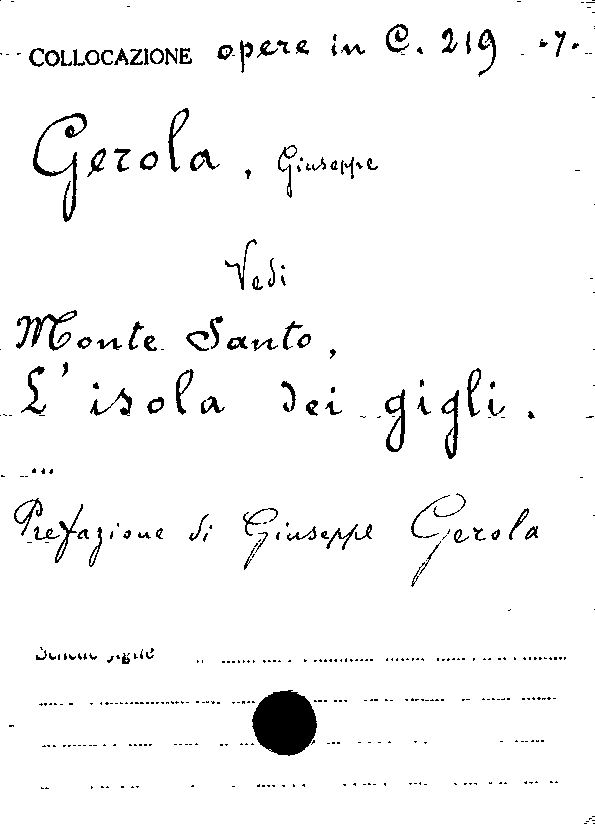 COLLOCAZIONE opere in C. 219 .7.
Gerola, Giuseppe
Vedi
Monte Santo,
L'isola dei gigli.
...
Prefazione di Giuseppe Gerola